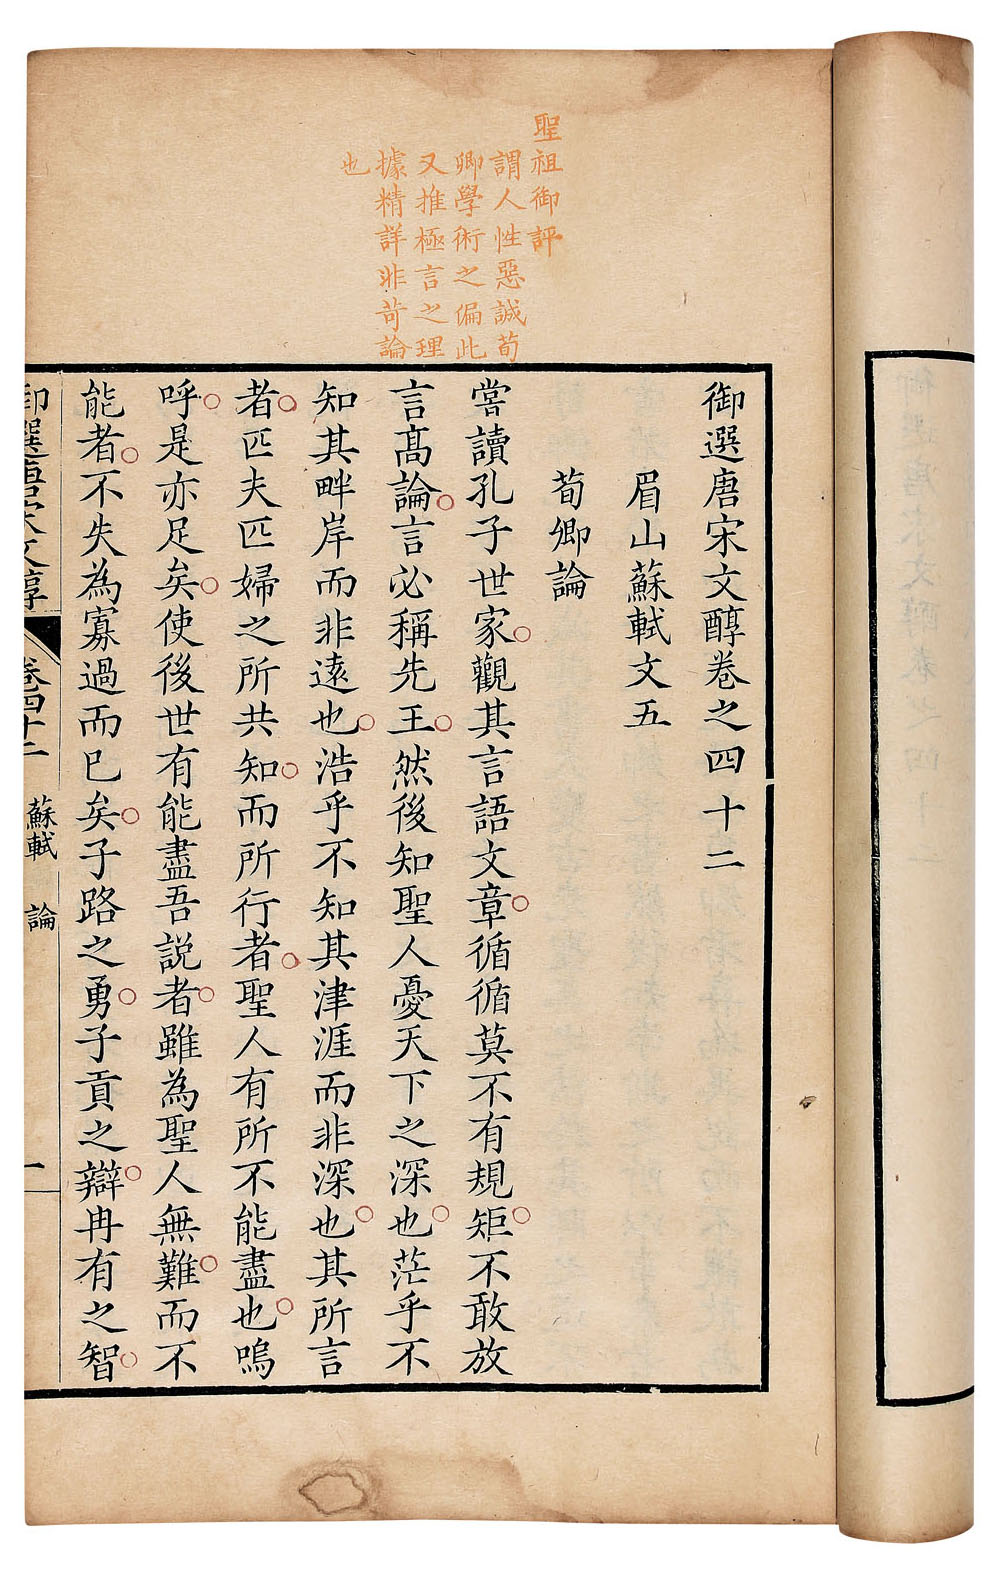 聖祖御評
謂人性惡誠荀
卿學術之偏此
又推極言之理
據精詳非苛論
也
御選唐宋文醇卷之四十二
眉山蘇軾文五
荀卿論
嘗讀孔子世家觀其言語文章循循莫不有規矩不敢放
言高論言必稱先王然後知聖人憂天下之深也茫乎不
知其畔岸而非遠也浩乎不知其津涯而非深也其所言
者匹夫匹婦之所共知而所行者聖人有所不能盡也嗚
呼是亦足矣使後世有能盡吾說者雖為聖人無難而不
能者不失為寡過而已矣子路之勇子貢之辯冉有之智
御選唐宋文醇 卷四十二 蘇軾 論 一